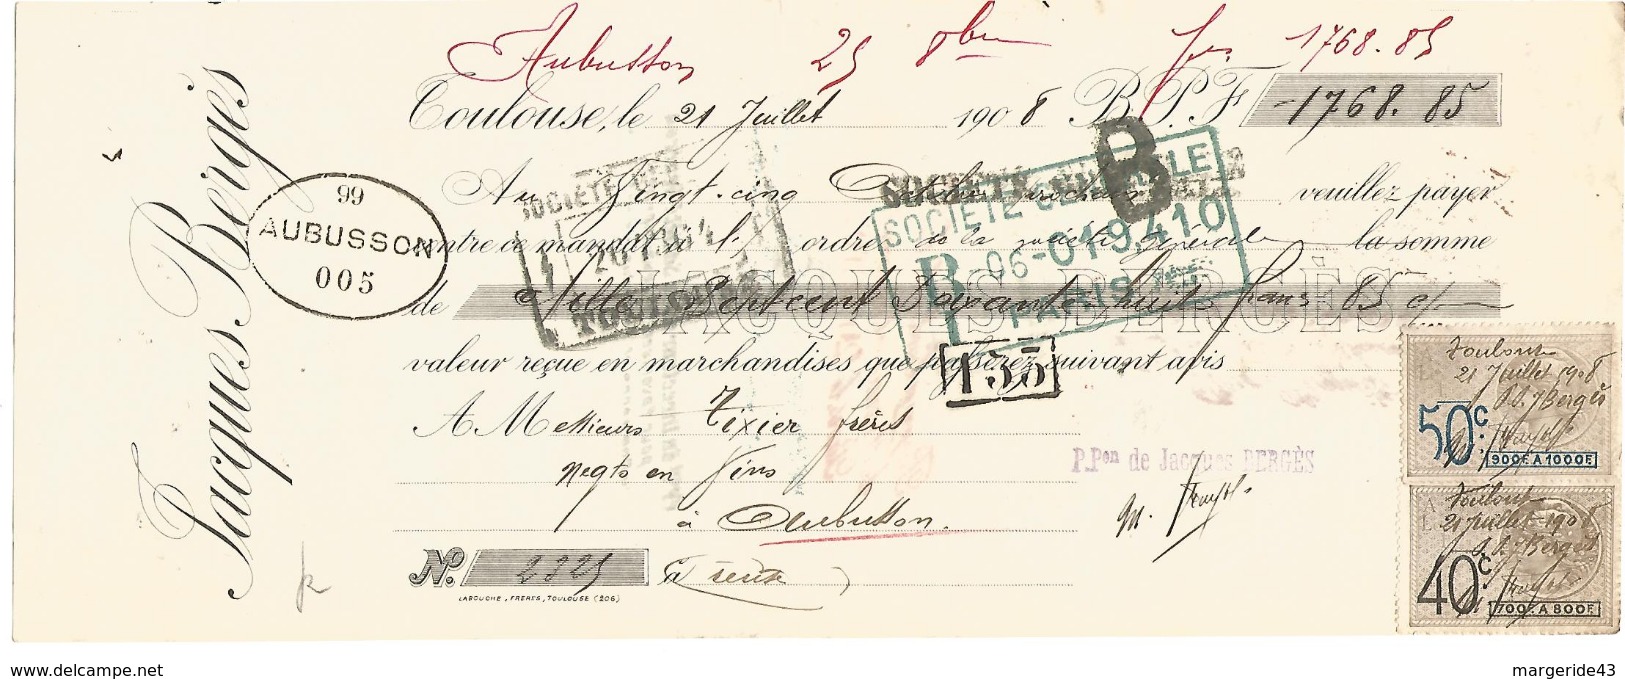 Aubusson 25 8bre frs 1768.85
Toulouse, le 21 Juillet 1908 B.P.F. -1768.85
Au Vingt-cinq Octobre prochain veuillez payer
contre ce mandat à l' ordre de la société générale la somme
de Mille Sept cent Soixante huit francs 85 c/
valeur reçue en marchandises que passerez suivant avis
A Messieurs Tixier frères
Negts en Vins
à Aubusson.
No. 2325
LABOUCHE, FRÈRES, TOULOUSE (206)
Jacques Bergès
JACQUES BERGÈS
99
AUBUSSON
005
TOULOUSE
B
SOCIÉTÉ GÉNÉRALE
06-019,410
PARIS
155
P.Pon de Jacques BERGÈS
Toulouse
21 Juillet 1908
P.P. J Bergès
50c.
900F. A 1000F.
Toulouse
21 Juillet 1908
P.P. J Bergès
40c.
700F. A 800F.
www.delcampe.net
margeride43